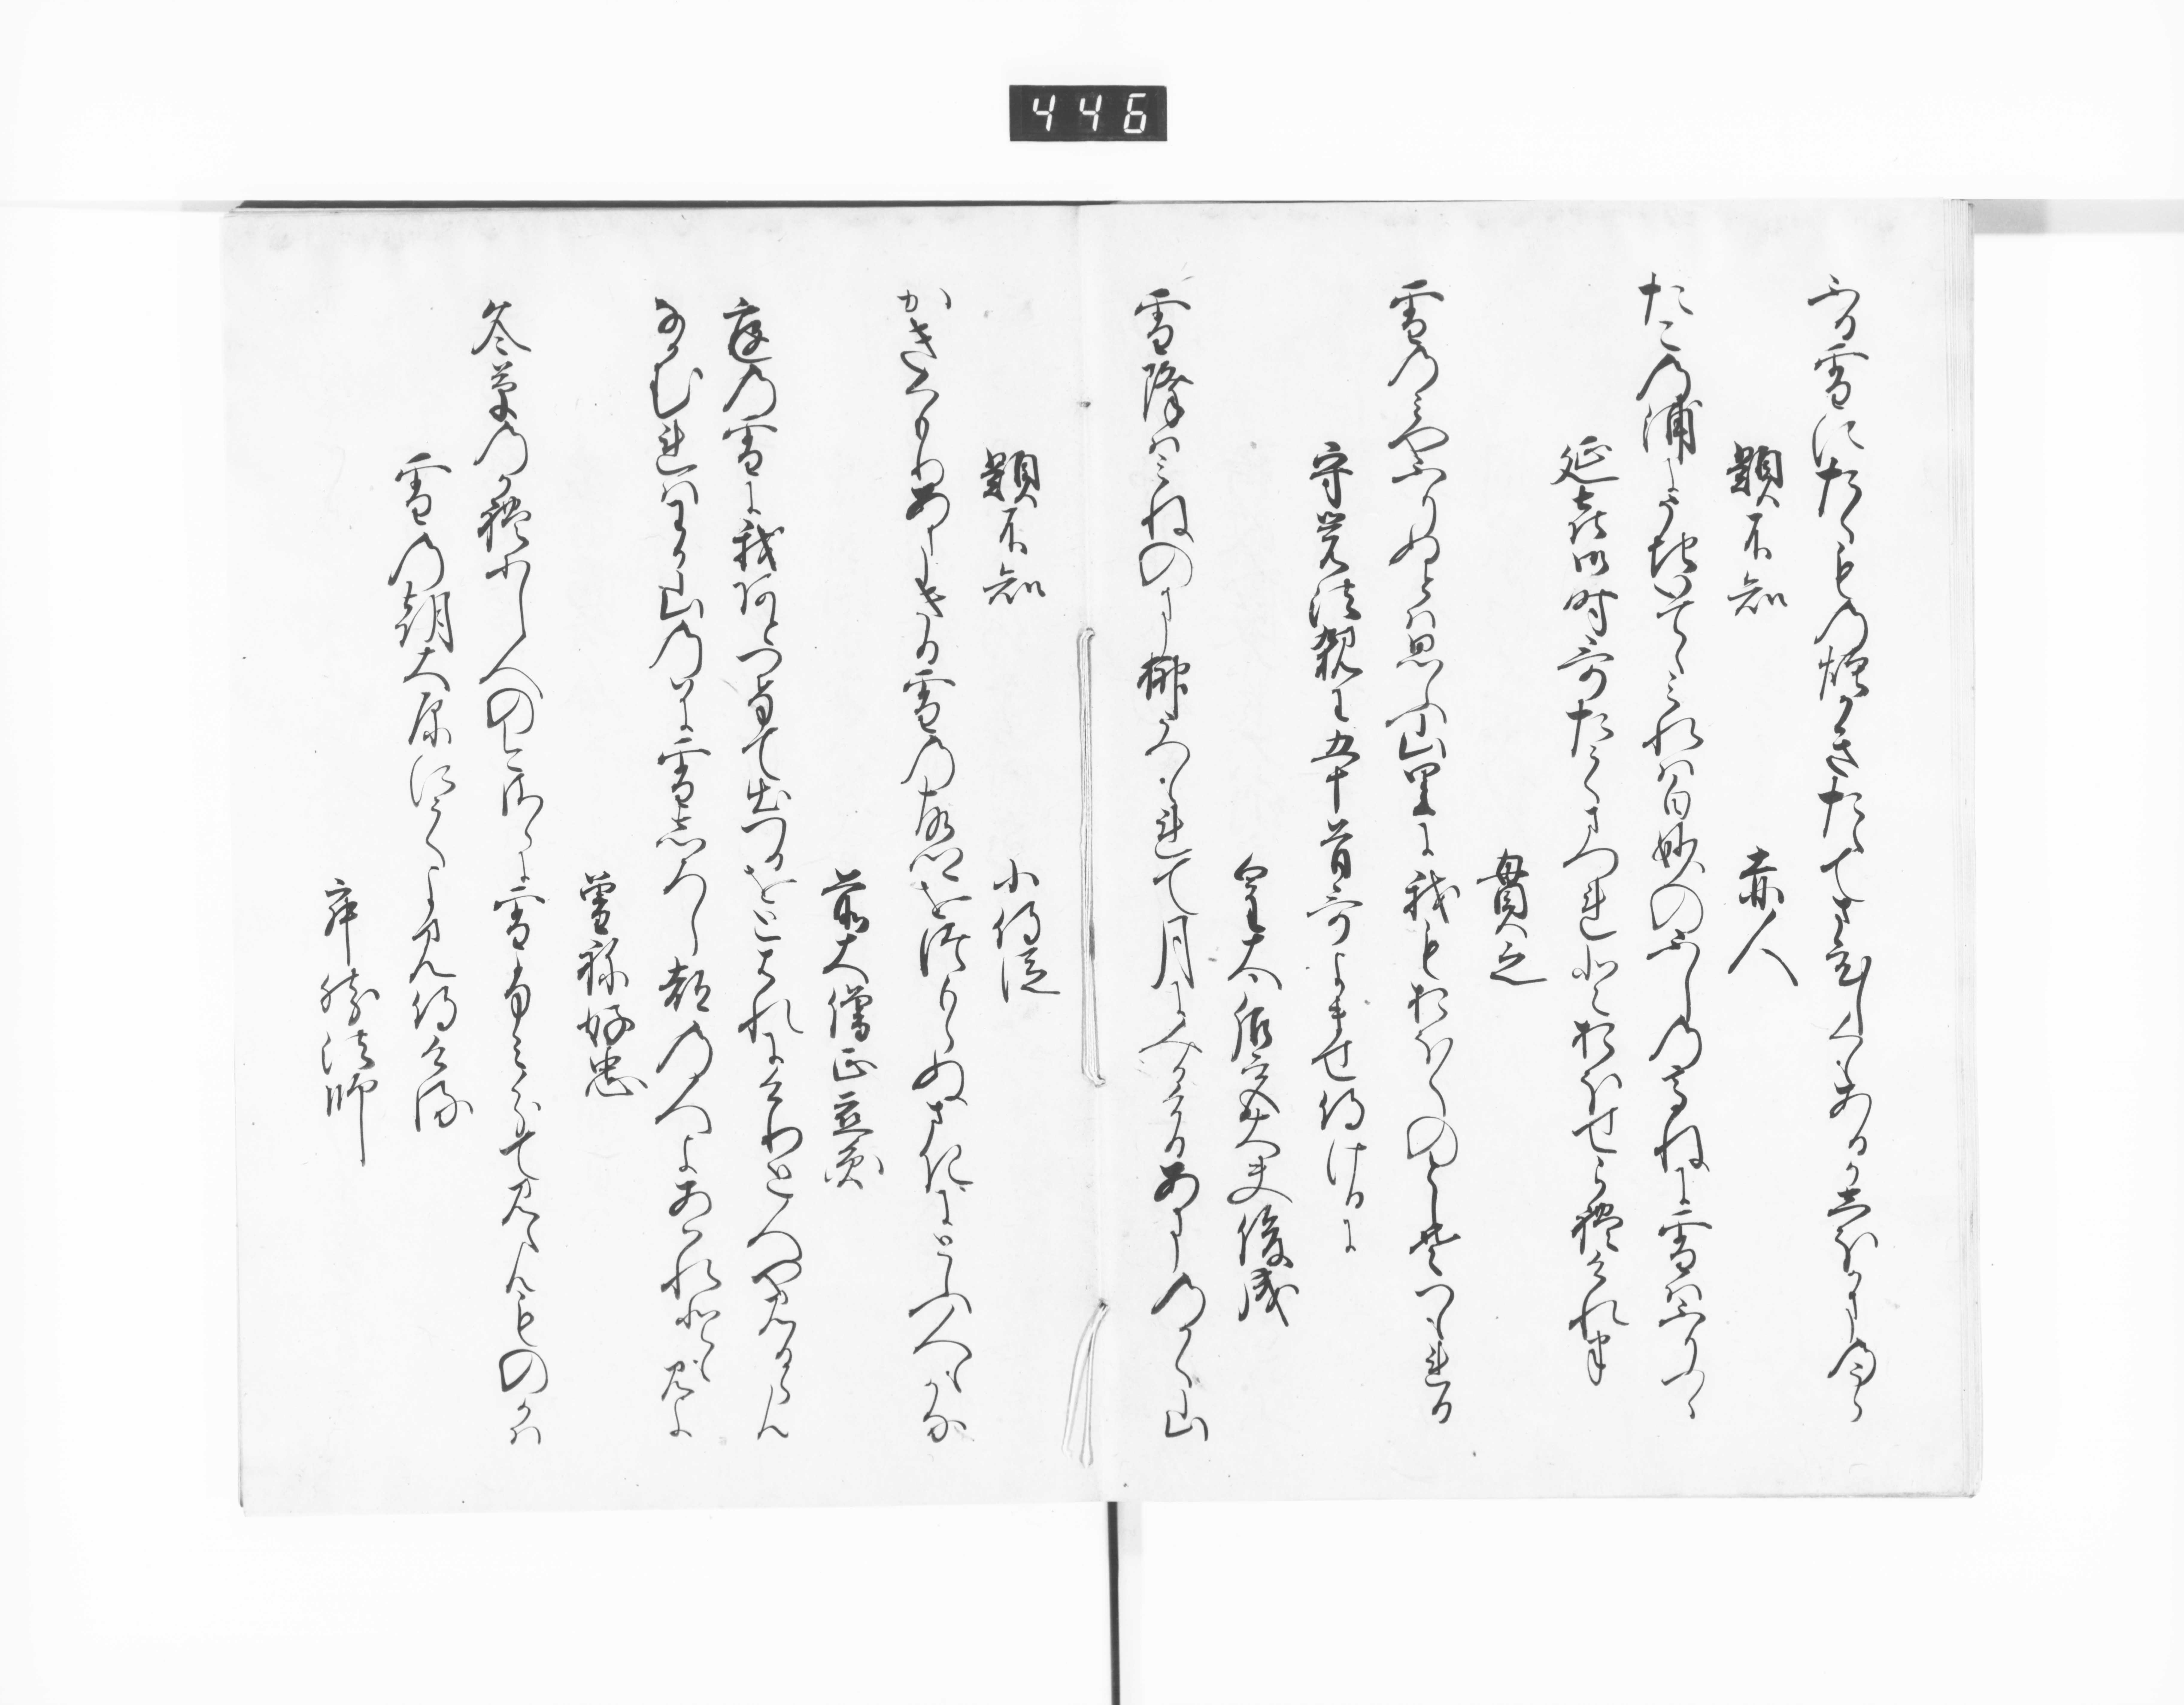 446
ふる雪にたくもの煙かきたえてさひしくもあるか塩かまのうら
題不知
赤人
たこの浦にうち出てみれは白妙のふしの高ねに雪はふりつゝ
延喜御時哥たてまつれとおほせられけれは
貫之
雪のみやふりぬとは思ふ山里に我もおほくのとしそつもれる
守覚法親王五十首哥よませ侍けるに
皇太后宮大夫俊成
雪降はみねのま榊うつもれて月にみかけるあまのかく山
題不知
小侍従
かきくもりあまきる雪の故郷を津もらぬさきにとふ人もかな
前大僧正慈円
庭の雪に我跡つけて出つるをとはれにけりと人や見るらん
なかむれはわか山のはに雪しろし都の人よあはれとも見よ
曽祢好忠
冬草のかれにし人のいまさらに雪ふみわけて見えんものかは
雪の朝大原にてよみ侍ける
寂然法師